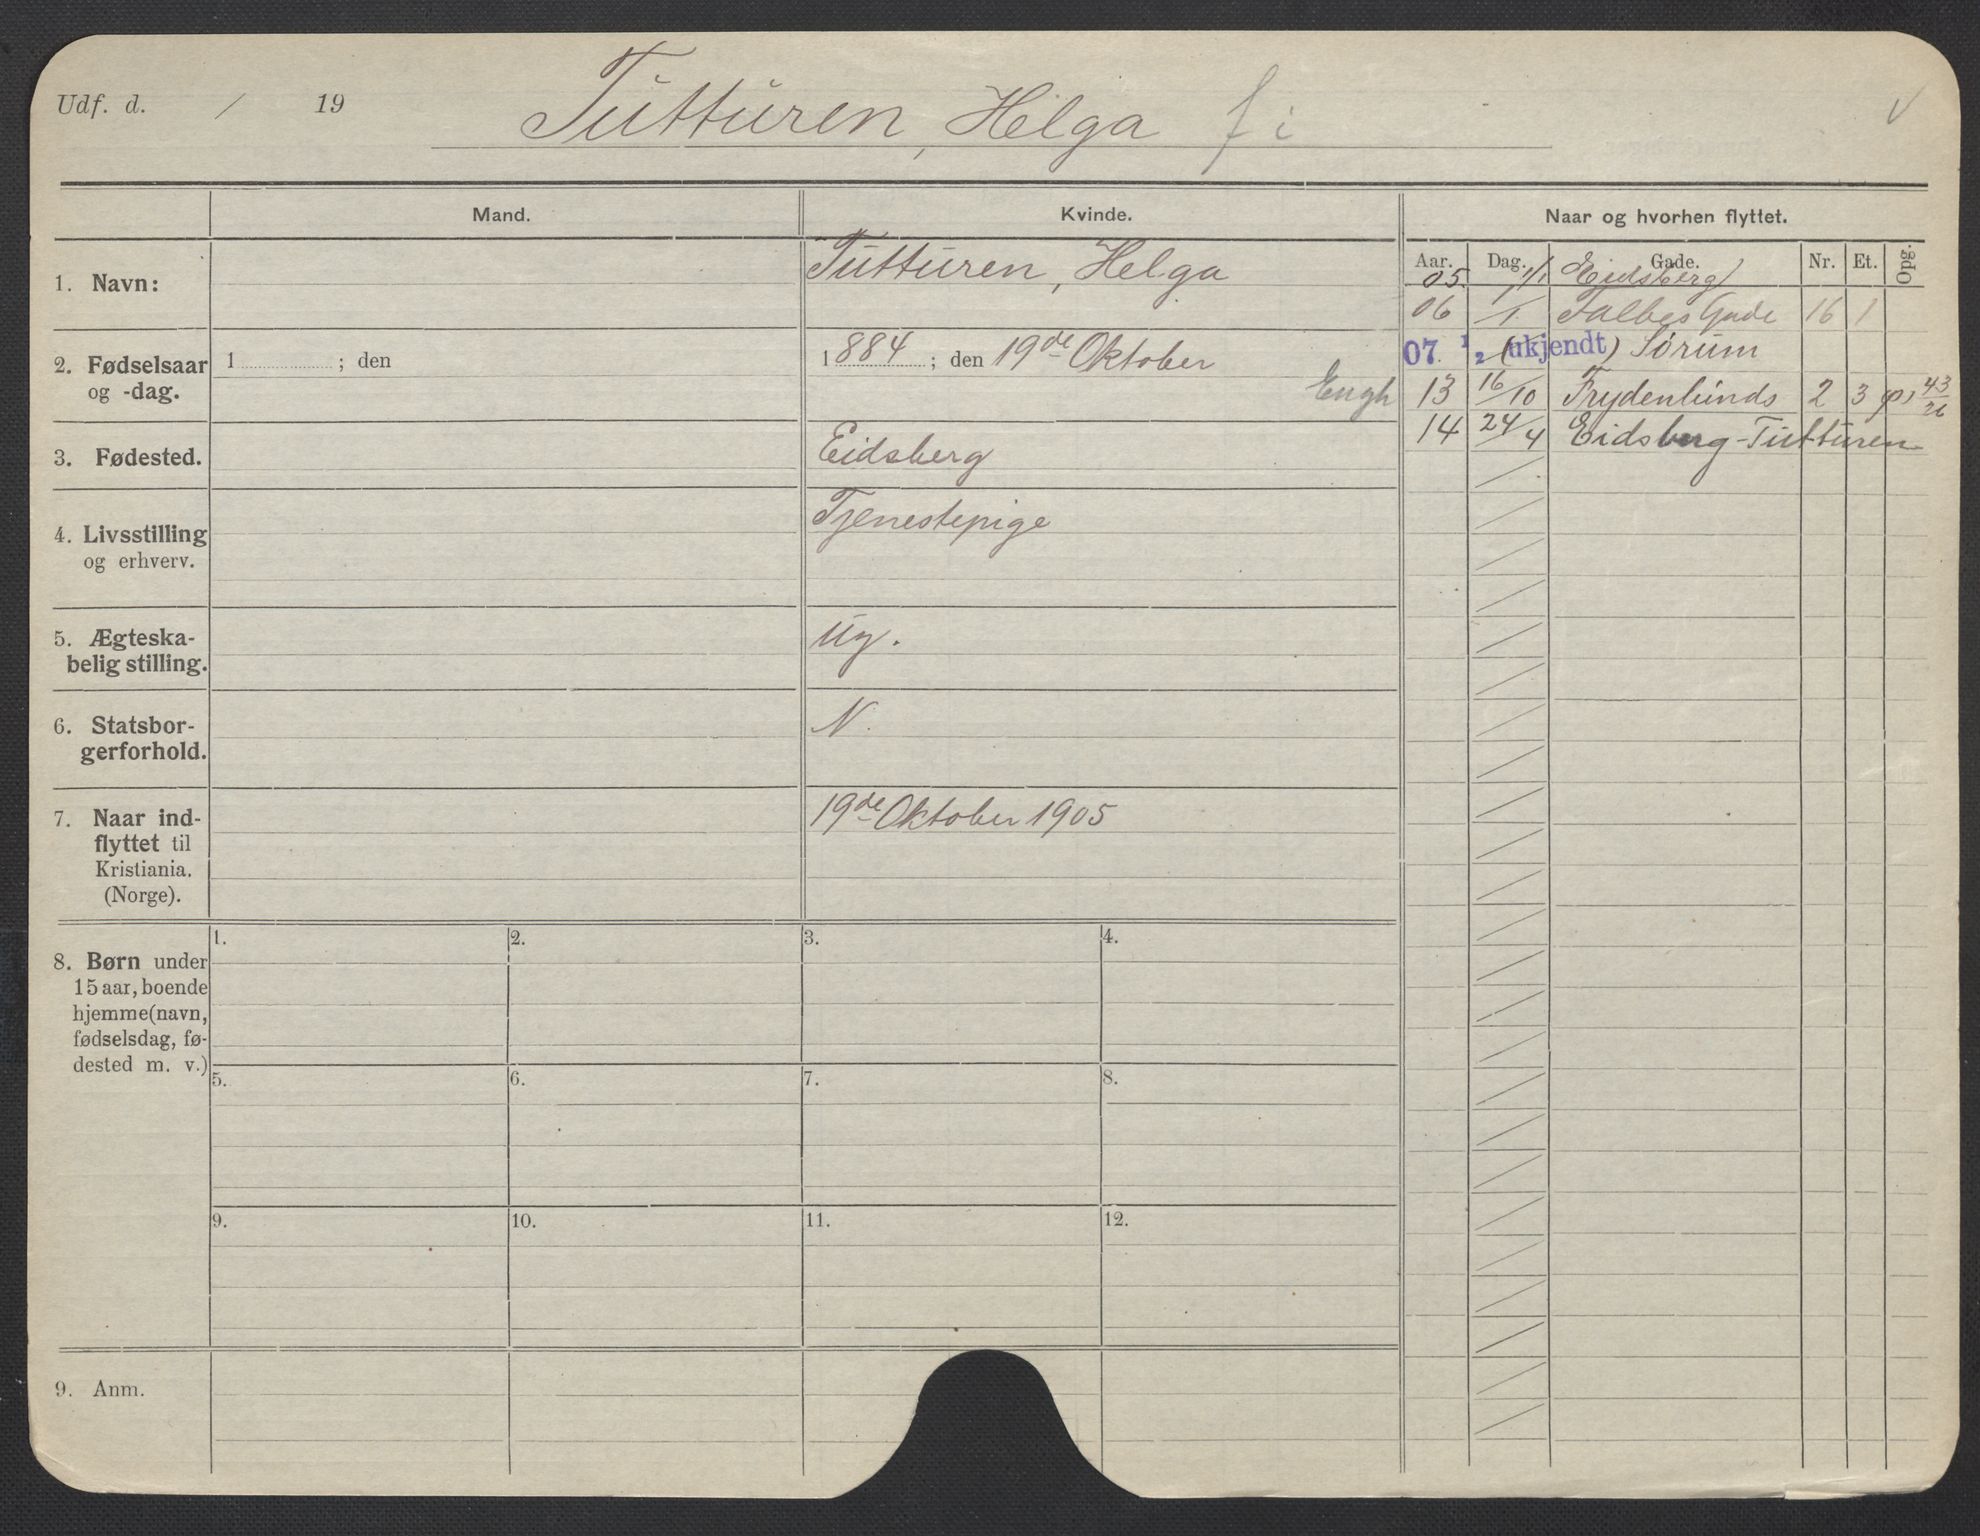 Udf. d. / 19 Tutturen, Helga f i
Mand. Kvinde. Naar og hvorhen flyttet.
Aar. Dag. Gade. Nr. Et. Opg.
1. Navn: Tutturen, Helga
05. 1/1 Eidsberg
06 / 1 Falbes Gade 16 1
2. Fødselsaar
og -dag.
1 ; den
1884 ; den 19de Oktober
07. 1/2 (ukjendt) Sørum
Engh 13 16/10 Frydenlunds 2 3 43/26
14 24/4 Eidsberg-Tutturen
3. Fødested. Eidsberg
4. Livsstilling
og erhverv.
Tjenestepige
5. Ægteska-
belig stilling.
ug.
6. Statsbor-
gerforhold.
N.
7. Naar ind-
flyttet til
Kristiania.
(Norge).
19de Oktober 1905
8. Børn under
15 aar, boende
hjemme (navn,
fødselsdag, fø-
dested m. v.)
1. 2. 3. 4.
5. 6. 7. 8.
9. 10. 11. 12.
9. Anm.